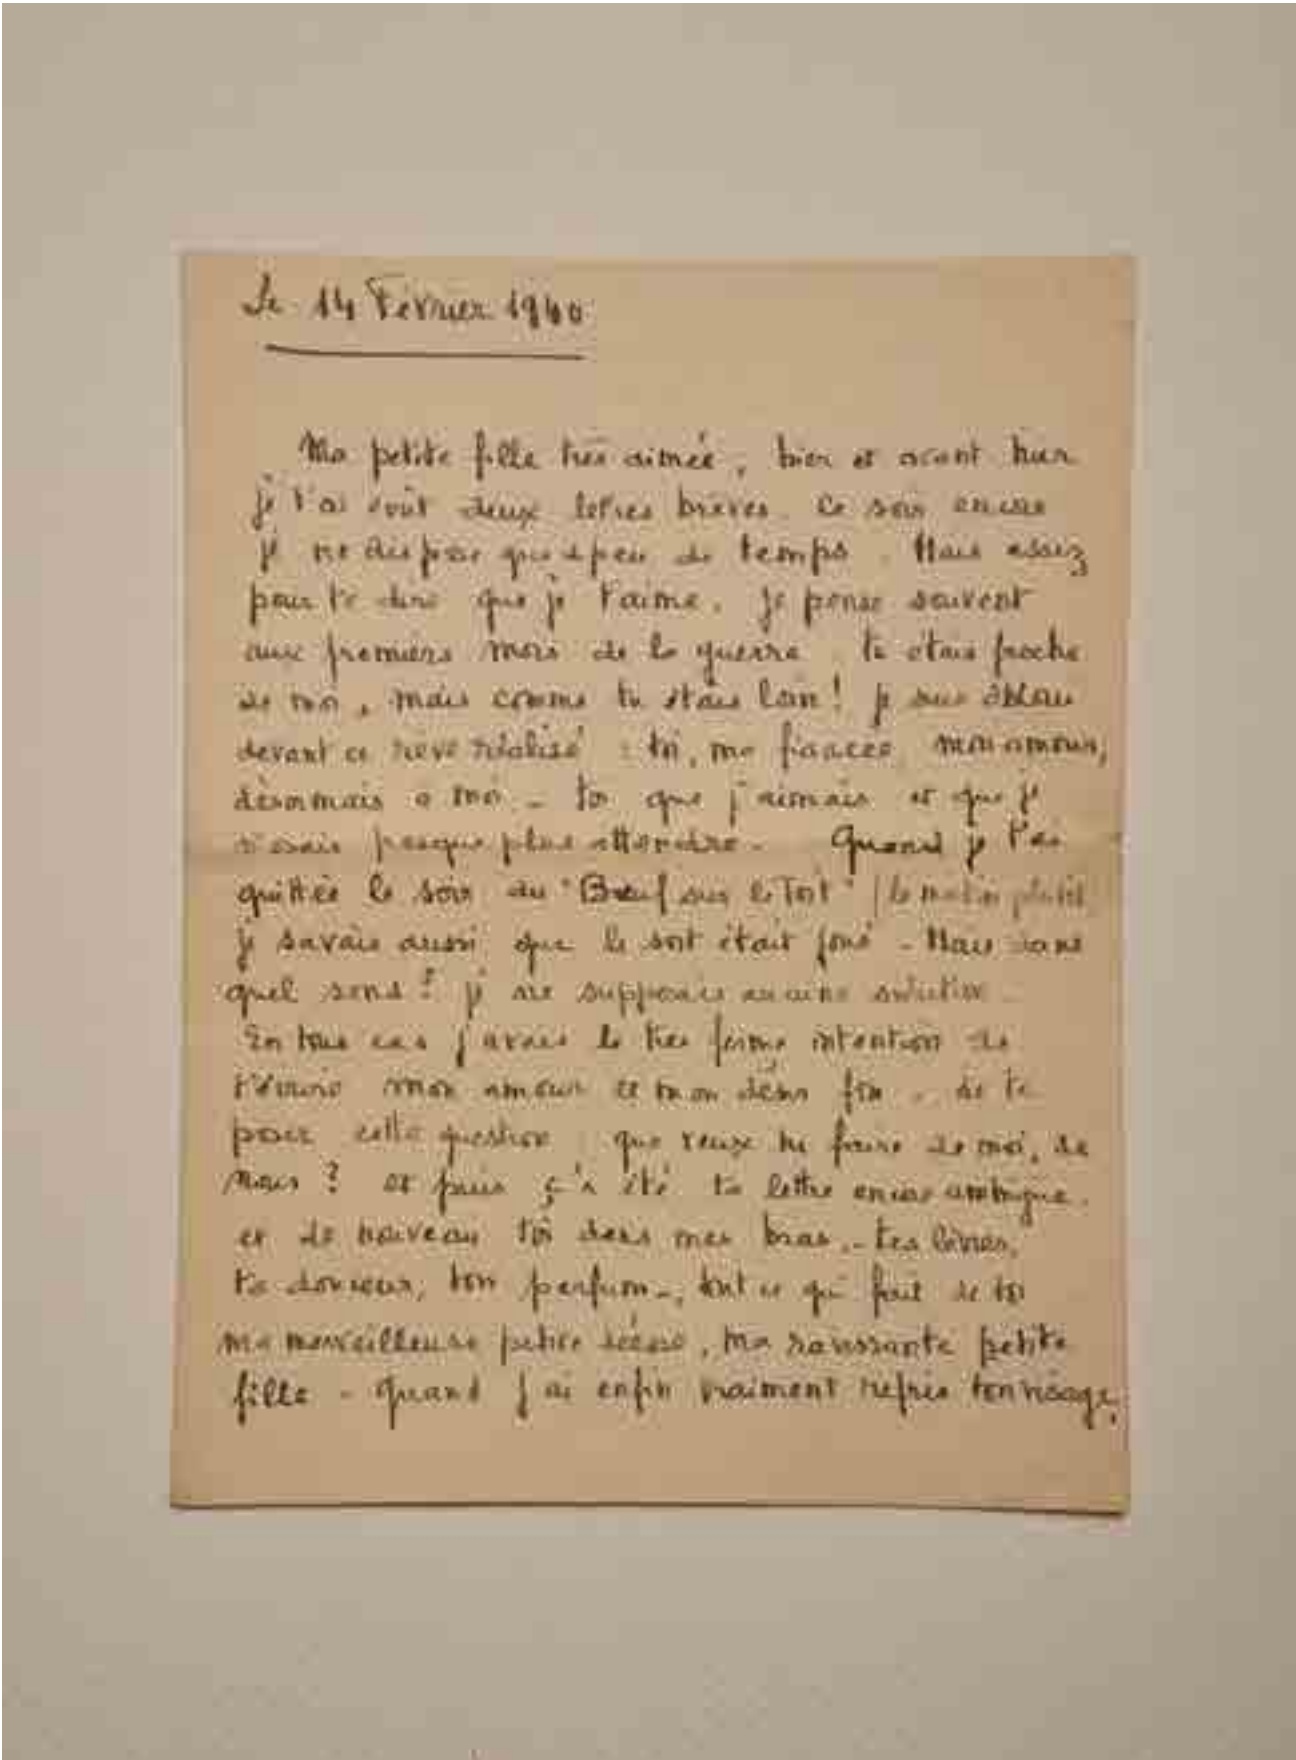 Le 14 Février 1940
Ma petite fille très aimée, hier et avant hier
je t'ai écrit deux lettres brèves. Ce soir encore
je ne dispose que de peu de temps. Mais assez
pour te dire que je t'aime. Je pense souvent
aux premiers mois de la guerre. tu étais proche
de moi, mais comme tu étais loin! je suis ébloui
devant ce rêve réalisé : toi, ma fiancée, mon amour,
désormais à moi - toi que j'aimais et que je
n'osais presque plus attendre - Quand je t'ai
quittée le soir du "Bœuf sur le Toit" (le matin plutôt)
je savais aussi que le sort était joué - Mais dans
quel sens? je ne supposais aucune solution.
En tous cas j'avais la très ferme intention de
t'écrire mon amour et mon désir fou, de te
poser cette question : que veux tu faire de moi, de
nous? et puis ç'a été ta lettre encore ambigue.
et de nouveau toi dans mes bras, - tes lèvres,
ta douceur, ton parfum -, tout ce qui fait de toi
ma merveilleuse petite déesse, ma ravissante petite
fille - quand j'ai enfin vraiment repris ton visage,